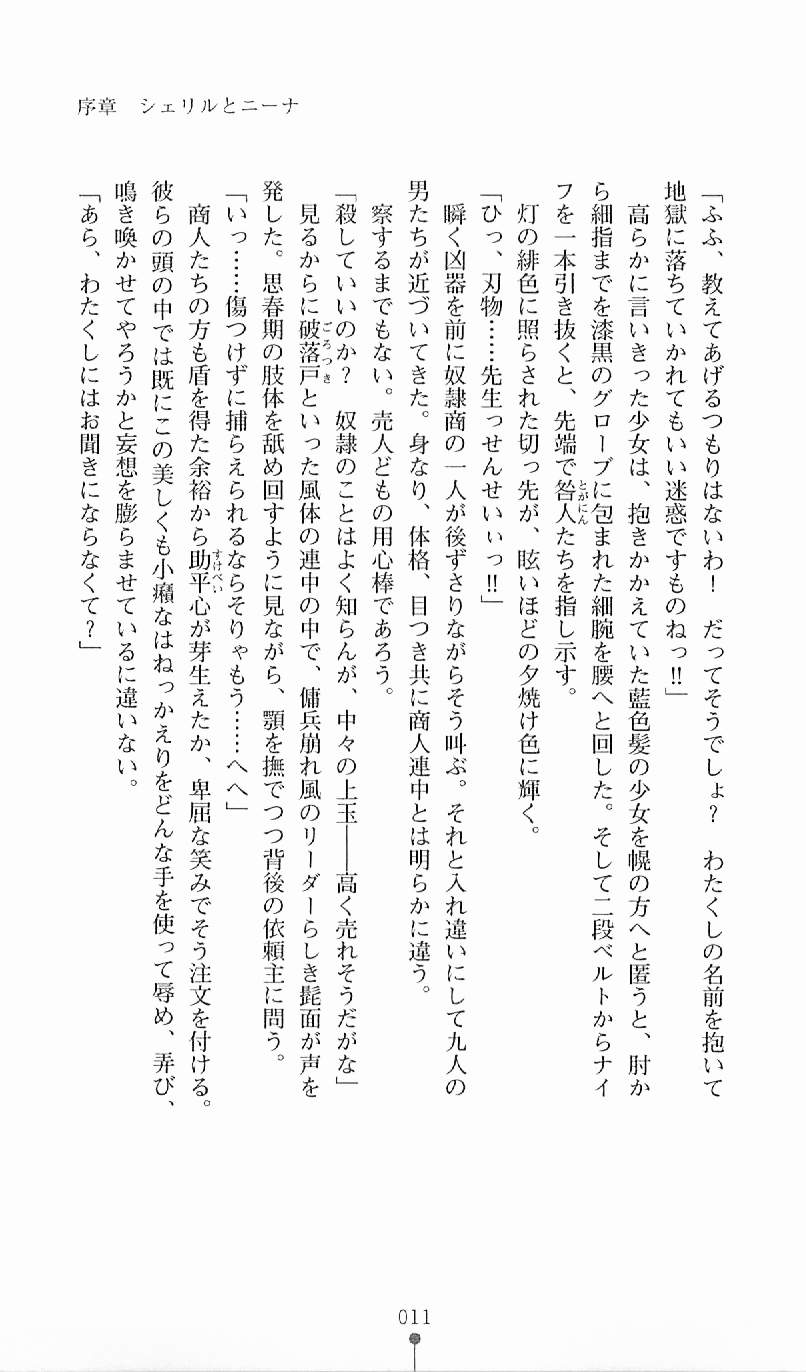 序章　シェリルとニーナ
「ふふ、教えてあげるつもりはないわ！　だってそうでしょ？　わたくしの名前を抱いて
地獄に落ちていかれてもいい迷惑ですものねっ‼」
　高らかに言いきった少女は、抱きかかえていた藍色髪の少女を幌の方へと匿うと、肘か
ら細指までを漆黒のグローブに包まれた細腕を腰へと回した。そして二段ベルトからナイ
フを一本引き抜くと、先端で咎人たちを指し示す。
　灯の緋色に照らされた切っ先が、眩いほどの夕焼け色に輝く。
「ひっ、刃物……先生っせんせいぃっ‼」
　瞬く凶器を前に奴隷商の一人が後ずさりながらそう叫ぶ。それと入れ違いにして九人の
男たちが近づいてきた。身なり、体格、目つき共に商人連中とは明らかに違う。
　察するまでもない。売人どもの用心棒であろう。
「殺していいのか？　奴隷のことはよく知らんが、中々の上玉――高く売れそうだがな」
　見るからに破落戸といった風体の連中の中で、傭兵崩れ風のリーダーらしき髭面が声を
発した。思春期の肢体を舐め回すように見ながら、顎を撫でつつ背後の依頼主に問う。
「いっ……傷つけずに捕らえられるならそりゃもう……へへ」
　商人たちの方も盾を得た余裕から助平心が芽生えたか、卑屈な笑みでそう注文を付ける。
彼らの頭の中では既にこの美しくも小癪なはねっかえりをどんな手を使って辱め、弄び、
鳴き喚かせてやろうかと妄想を膨らませているに違いない。
「あら、わたくしにはお聞きにならなくて？」
011